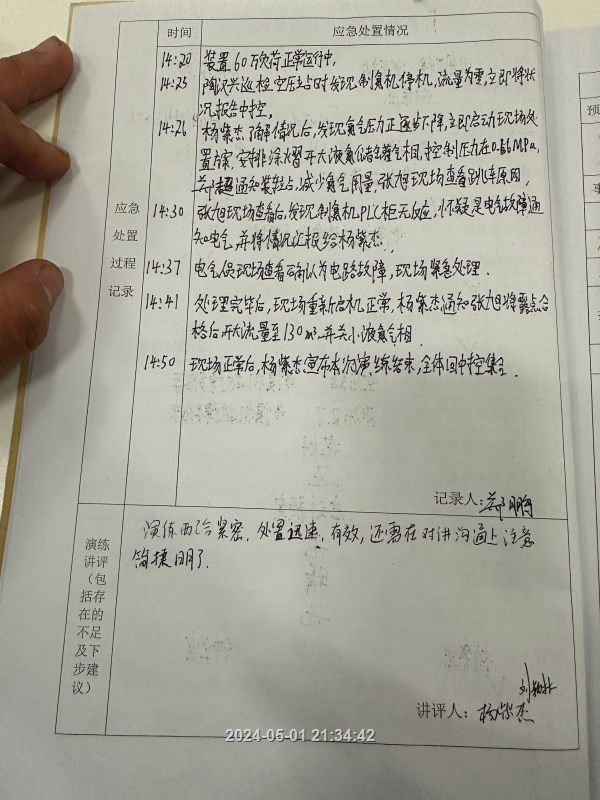 时间 应急处置情况
14:20 装置60万负荷正常运行中,
14:25 陶汉兴巡检空压站时发现制氮机停机,流量为零,立即将状
况报告中控,
14:26 杨紫杰了解情况后,发现氮气压力正逐步下降,立即启动现场处
置方案,安排 开大液氮储罐气相,控制压力在0.66MPa,
超通知装轻站,减少氮气用量,张旭现场查看跳车原因,
14:30 张旭现场查看后,发现制氮机PLC柜无反应,怀疑是电气故障通
知电气,并将情况汇报给杨紫杰.
14:37 电气人员现场查看确认为电路故障,现场紧急处理.
14:41 处理完毕后,现场重新启机正常,杨紫杰通知张旭将露点合
格后开大流量至130m³.并关小液氮气相
14:50 现场正常后,杨紫杰宣布本次演练结束,全体回中控集合
应急
处置
过程
记录
记录人:
演练
讲评
(包
括存
在的
不足
及下
步建
议)
演练配合紧密,处置迅速,有效,还需在对讲沟通上注意
简捷明了.
讲评人:杨紫杰
2024-05-01 21:34:42
预
事